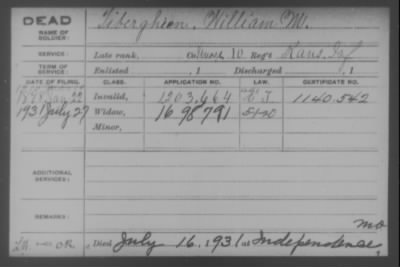 DEAD
NAME OF SOLDIER: Tiberghien, William M.
SERVICE: Late rank, Co. Unassd, 10 Reg't Kans. Inf.
TERM OF SERVICE: Enlisted , 1 Discharged , 1
DATE OF FILING. CLASS. APPLICATION NO. LAW. CERTIFICATE NO.
22 Invalid, 1203.464 C J. 1140.542
1931 July 27 Widow, 1698791
Minor,
ADDITIONAL SERVICES:
REMARKS:
Mo
Died July 16, 1931 at Independence